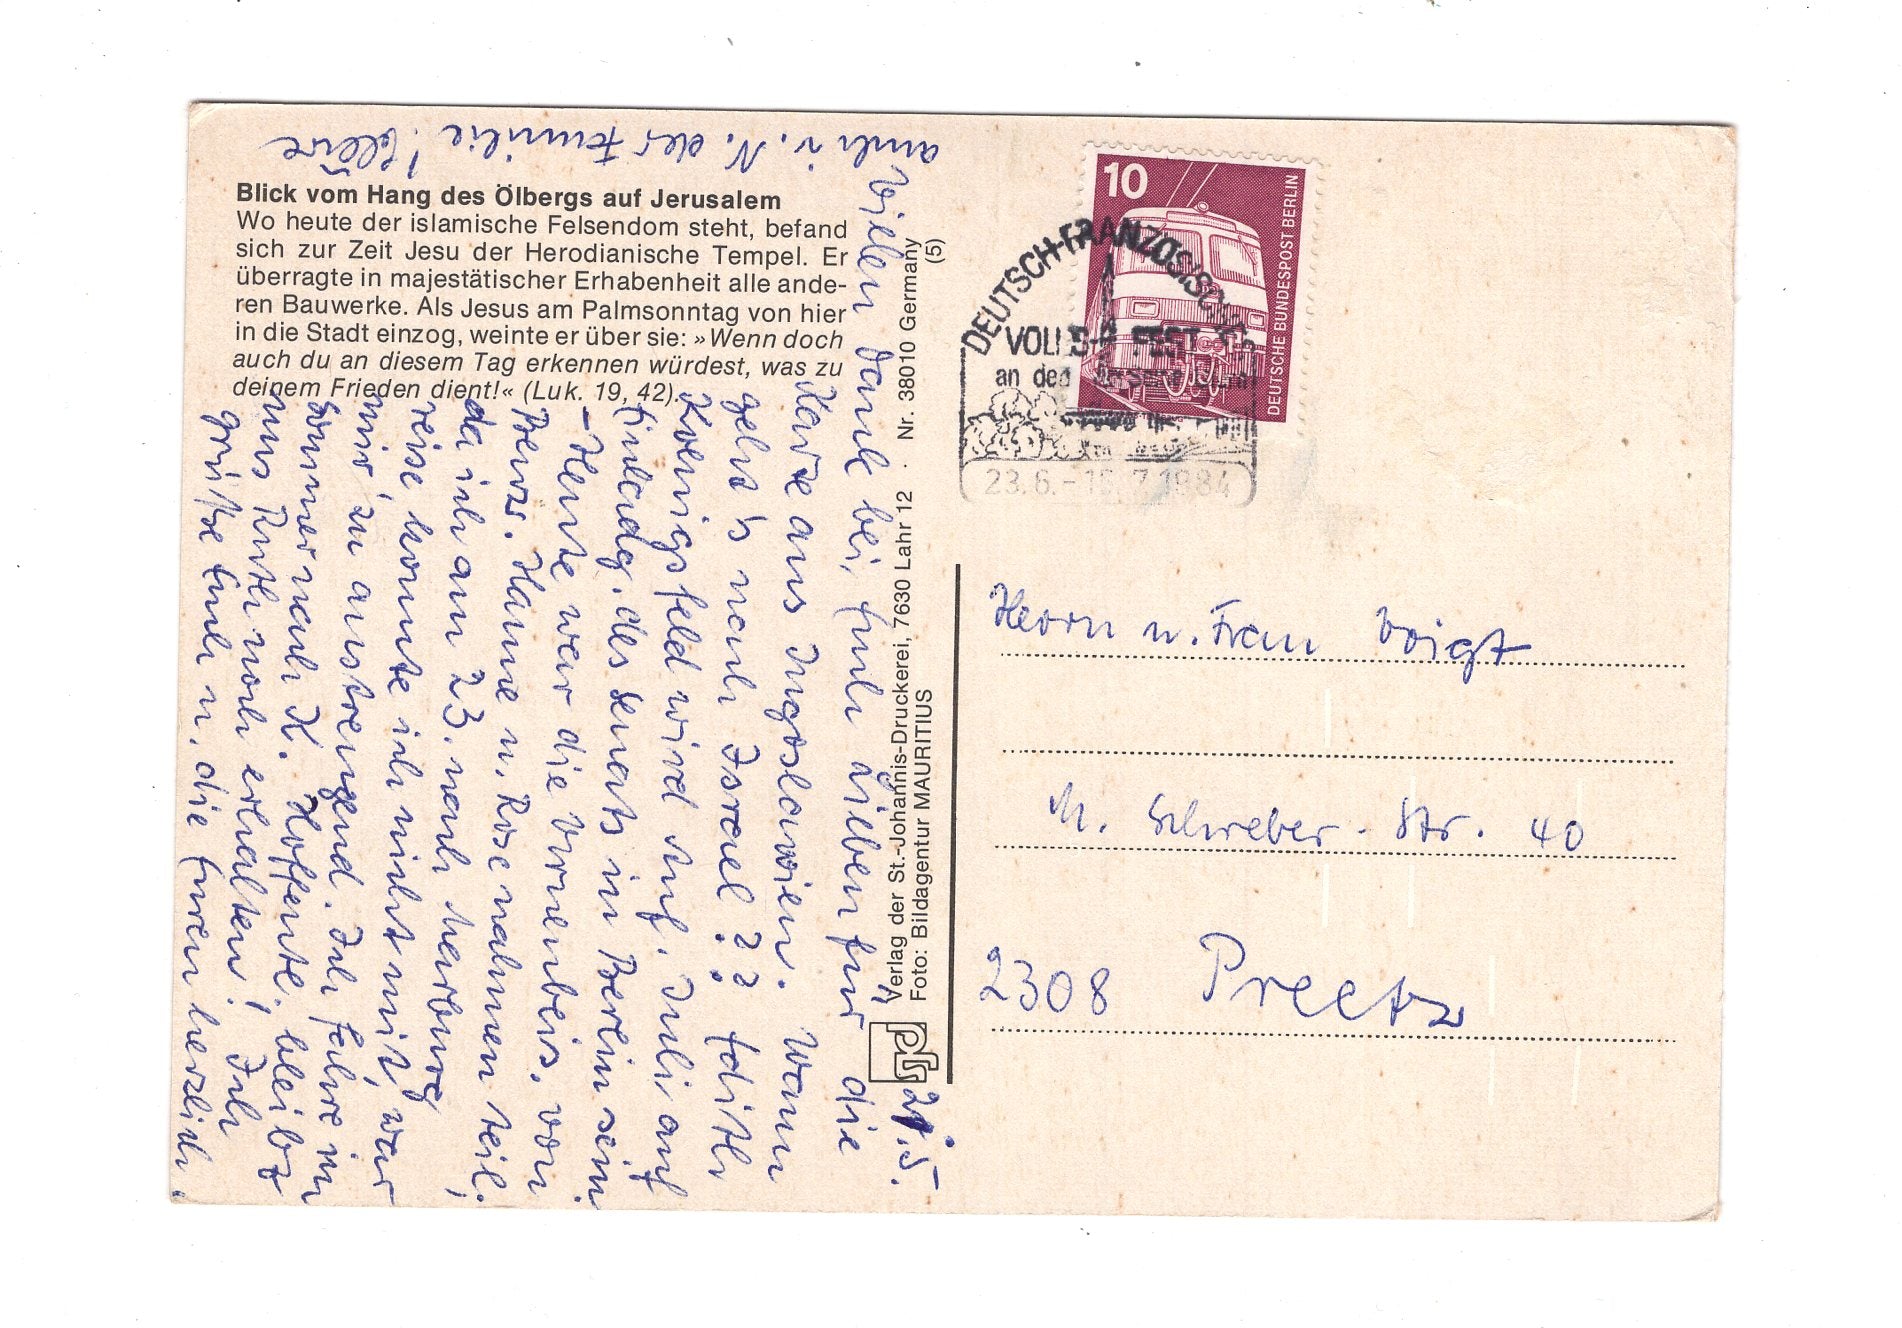 Blick vom Hang des Ölbergs auf Jerusalem
Wo heute der islamische Felsendom steht, befand
sich zur Zeit Jesu der Herodianische Tempel. Er
überragte in majestätischer Erhabenheit alle ande-
ren Bauwerke. Als Jesus am Palmsonntag von hier
in die Stadt einzog, weinte er über sie: »Wenn doch
auch du an diesem Tag erkennen würdest, was zu
deinem Frieden dient!« (Luk. 19, 42).
Verlag der St.-Johannis-Druckerei, 7630 Lahr 12 · Nr. 38010 Germany
Foto: Bildagentur MAURITIUS (5)
sjd
10
DEUTSCHE BUNDESPOST BERLIN
DEUTSCH-FRANZÖSISCHES
VOLKS-FEST
an der
23.6.-15.7.1984
Herrn u. Frau Voigt
M. Schreber-Str. 40
2308 Preetz
21.5.
Vielen Dank bei Euch Lieben für die
Karte aus Jugoslawien. Wann
geht's nach Israel?? Edith
Koenigsfeld wird Auf. Juli auf
Einladg. des Senats in Berlin sein.
- Heute war die Vornenbeis. von
Benz. Hanne u. Rose nahmen teil.
da ich am 23. nach Marburg
reise, konnte ich nicht mit, war
mir zu anstrengend. Ich fahre im
Sommer nach K. Hoffentl. bleibt
uns Ruth noch erhalten! Ich
grüße Euch u. die Euren herzlich.
auch i. N. der Familie!